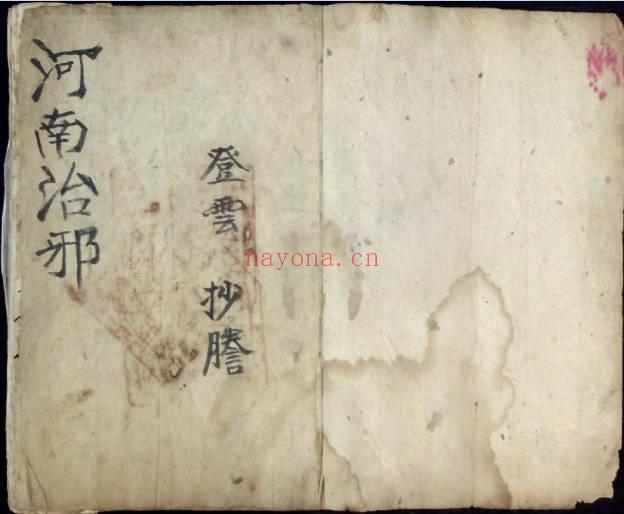 河南治邪
登雲 抄謄
nayona.cn